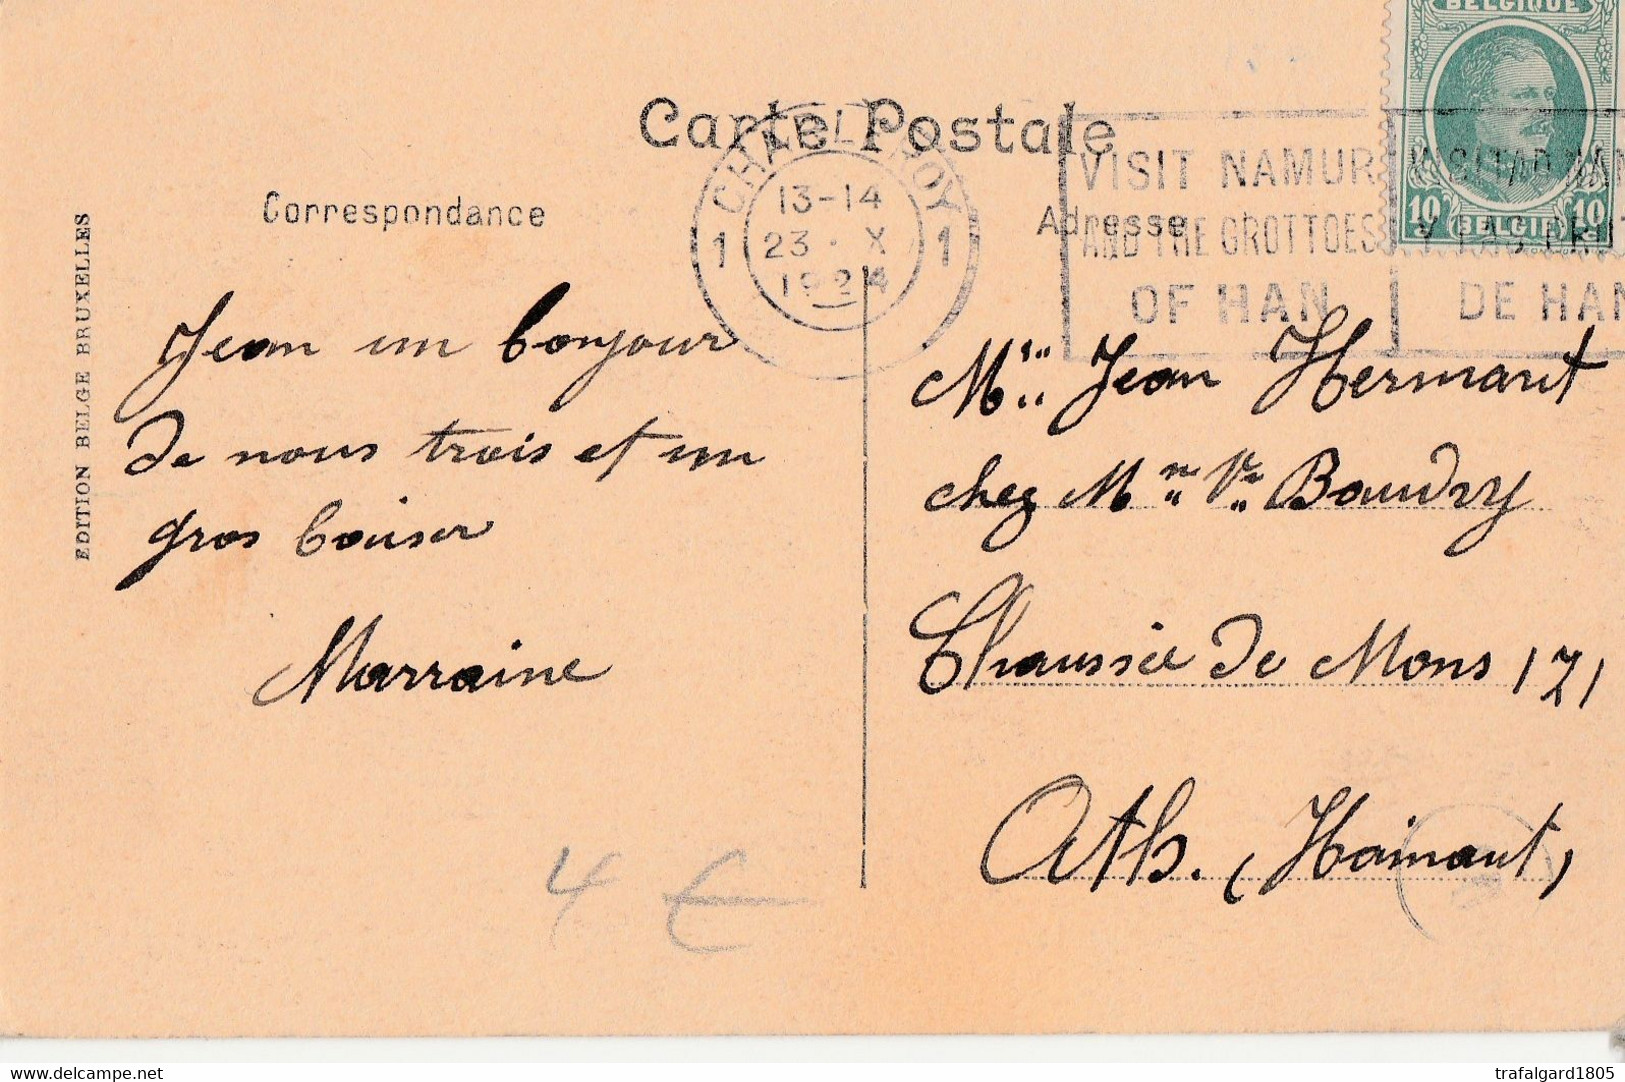 Carte Postale
Correspondance
Adresse
EDITION BELGE BRUXELLES
CHARLEROY
1 13-14 1
23 · X
1924
VISIT NAMUR
AND THE GROTTOES
OF HAN
DE HAN
BELGIQUE
10 BELGIE 10
Jean un bonjour
de nous trois et un
gros baiser
Marraine
Jean Hermant
chez Mme Ve Baudry
Chaussée de Mons 171
Ath. (Hainaut)
4 €
delcampe.net
trafalgard1805